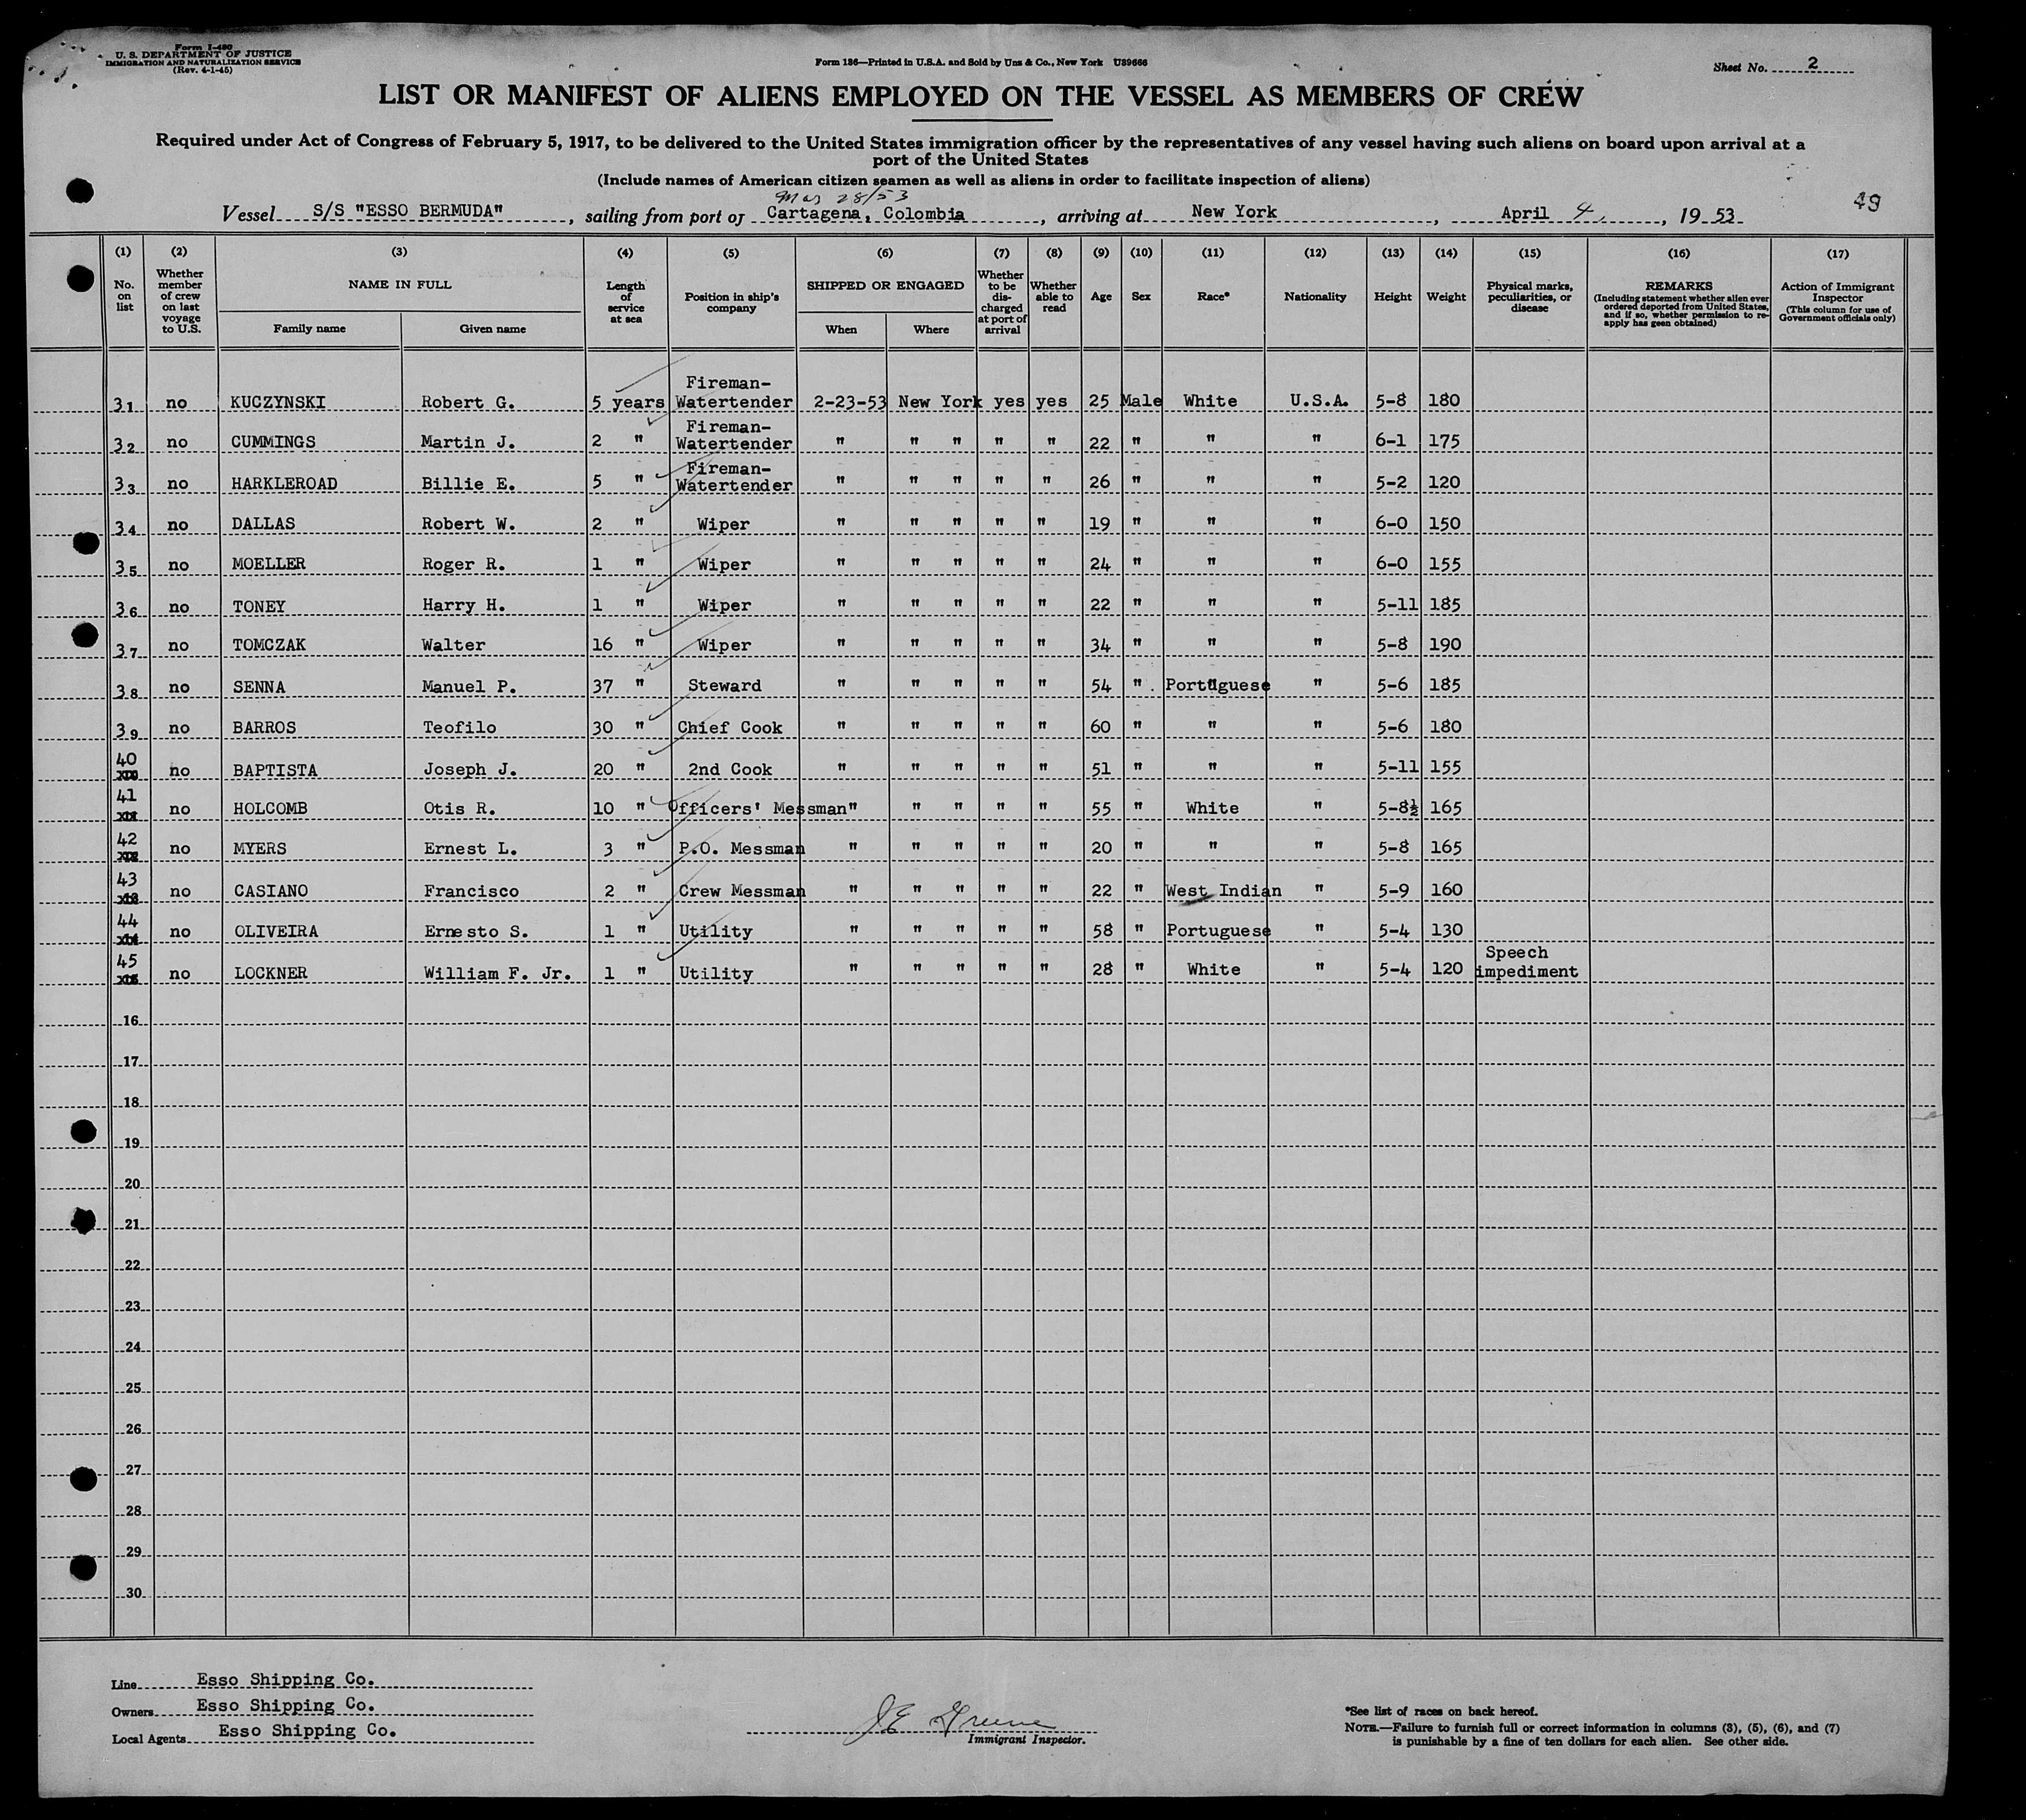 Form I-480
U. S. DEPARTMENT OF JUSTICE
IMMIGRATION AND NATURALIZATION SERVICE
(Rev. 4-1-45)
Form 186—Printed in U.S.A. and Sold by Unz & Co., New York U89666
Sheet No. 2
LIST OR MANIFEST OF ALIENS EMPLOYED ON THE VESSEL AS MEMBERS OF CREW
Required under Act of Congress of February 5, 1917, to be delivered to the United States immigration officer by the representatives of any vessel having such aliens on board upon arrival at a
port of the United States
(Include names of American citizen seamen as well as aliens in order to facilitate inspection of aliens)
Mar 28/53
49
Vessel S/S "ESSO BERMUDA", sailing from port of Cartagena, Colombia, arriving at New York, April 4, 1953
(1) (2) (3) (4) (5) (6) (7) (8) (9) (10) (11) (12) (13) (14) (15) (16) (17)
No. on list
Whether member of crew on last voyage to U.S.
NAME IN FULL
Family name Given name
Length of service at sea
Position in ship's company
SHIPPED OR ENGAGED
When Where
Whether to be discharged at port of arrival
Whether able to read
Age Sex Race* Nationality Height Weight
Physical marks, peculiarities, or disease
REMARKS
(Including statement whether alien ever ordered deported from United States, and if so, whether permission to reapply has geen obtained)
Action of Immigrant Inspector
(This column for use of Government officials only)
31 no KUCZYNSKI Robert G. 5 years Fireman-Watertender 2-23-53 New York yes yes 25 Male White U.S.A. 5-8 180
32 no CUMMINGS Martin J. 2 " Fireman-Watertender " " " " " 22 " " " 6-1 175
33 no HARKLEROAD Billie E. 5 " Fireman-Watertender " " " " " 26 " " " 5-2 120
34 no DALLAS Robert W. 2 " Wiper " " " " " 19 " " " 6-0 150
35 no MOELLER Roger R. 1 " Wiper " " " " " 24 " " " 6-0 155
36 no TONEY Harry H. 1 " Wiper " " " " " 22 " " " 5-11 185
37 no TOMCZAK Walter 16 " Wiper " " " " " 34 " " " 5-8 190
38 no SENNA Manuel P. 37 " Steward " " " " " 54 " Portuguese " 5-6 185
39 no BARROS Teofilo 30 " Chief Cook " " " " " 60 " " " 5-6 180
40 no BAPTISTA Joseph J. 20 " 2nd Cook " " " " " 51 " " " 5-11 155
41 no HOLCOMB Otis R. 10 " Officers' Messman" " " " " 55 " White " 5-8½ 165
42 no MYERS Ernest L. 3 " P.O. Messman " " " " " 20 " " " 5-8 165
43 no CASIANO Francisco 2 " Crew Messman " " " " " 22 " West Indian " 5-9 160
44 no OLIVEIRA Ernesto S. 1 " Utility " " " " " 58 " Portuguese " 5-4 130
45 no LOCKNER William F. Jr. 1 " Utility " " " " " 28 " White " 5-4 120 Speech impediment
16
17
18
19
20
21
22
23
24
25
26
27
28
29
30
Line Esso Shipping Co.
Owners Esso Shipping Co.
Local Agents Esso Shipping Co.
JE Greene
Immigrant Inspector.
*See list of races on back hereof.
NOTE.—Failure to furnish full or correct information in columns (3), (5), (6), and (7)
is punishable by a fine of ten dollars for each alien. See other side.